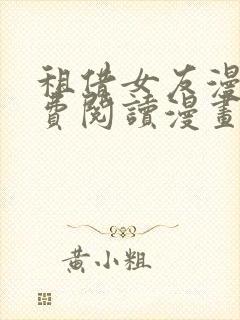 租借女友漫
費閱讀漫畫
黃小粗